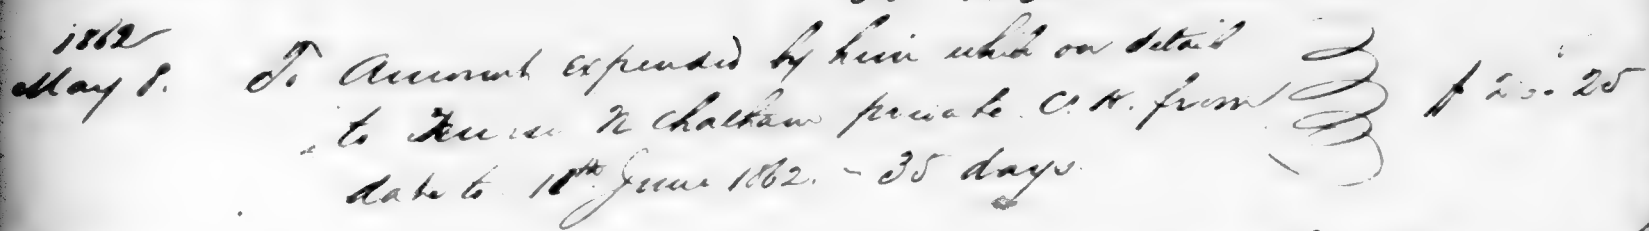 1862
May 8. To Amount expended by him while on detail
to Nurse N Chatham private C. H. from
date to 18th June 1862. - 35 days.